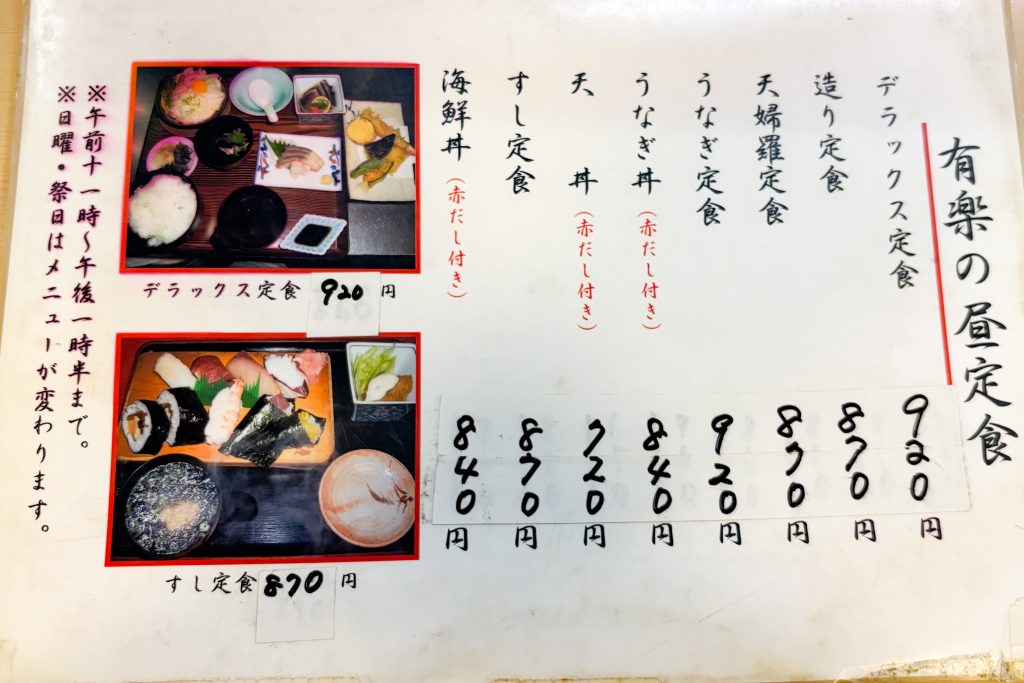 有楽の昼定食
デラックス定食 920円
造り定食 870円
天婦羅定食 870円
うなぎ定食 920円
うなぎ丼（赤だし付き） 840円
天丼（赤だし付き） 720円
すし定食 870円
海鮮丼（赤だし付き） 840円
デラックス定食 920円
すし定食 870円
※午前十一時～午後一時半まで。
※日曜・祭日はメニューが変わります。